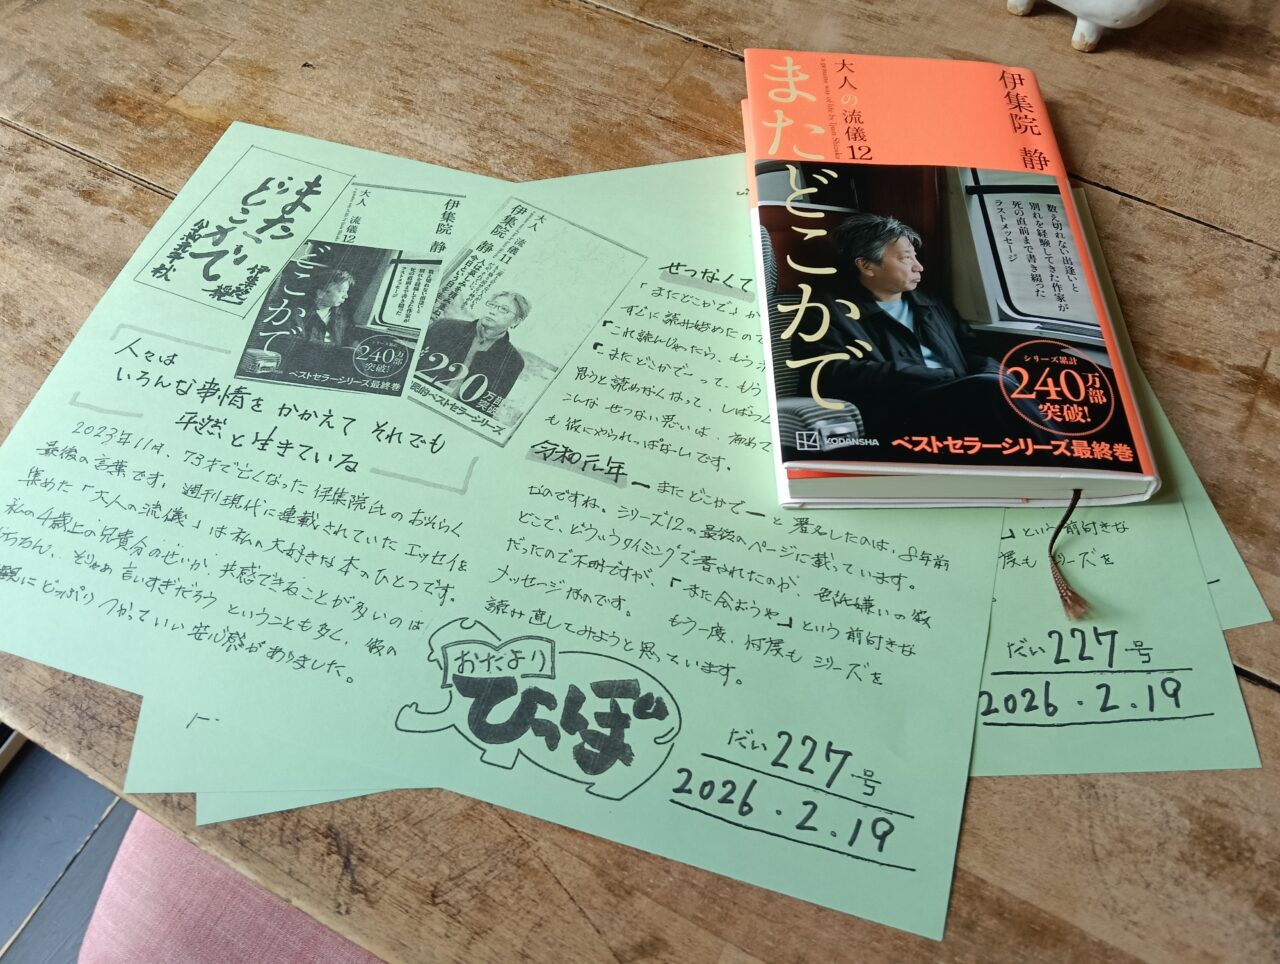 またどこかで
大人の流儀12
a genuine way of life by Ijuin Shizuka
伊集院 静
数え切れない出逢いと
別れを経験してきた作家が
死の直前まで書き綴った
ラストメッセージ
シリーズ累計
240万部
突破!
KODANSHA
ベストセラーシリーズ最終巻
またどこかで
伊集院静
令和元年 秋
大人 流儀12
伊集院 静
どこかで
数え切れない出逢いと
別れを経験してきた作家が
死の直前まで書き綴った
ラストメッセージ
240万部
突破!
ベストセラーシリーズ最終巻
大人 流儀11
伊集院 静
220万部
突破
ベストセラーシリーズ
人々は
いろんな事情を かかえて それでも
平然と生きている
2023年11月、73才で亡くなった 伊集院氏の おそらく
最後の言葉です。週刊現代に連載されていた エッセイを
集めた「大人の流儀」は 私の大好きな本のひとつです。
私の4歳上の兄貴分のせいか、共感できることが多いのは
もちろん、そりゃあ 言いすぎだろう ということも多く、彼の
にどっぷり つかっていい 安心感がありました。
せつなくて
「またどこかで」が
すぐに読み始めたので
「これ読んじゃったら、もう
「またどこかで」って、もう
思うと読めなくなって、しばらく
こんな せつない思いは、初めて
も彼にやられっぱなしです。
令和元年 ーまたどこかでー と 署名したのは、
なのですね。シリーズ12の最後のページに載っています。
どこで、どういうタイミングで書かれたのか、
だったので不明ですが、「また会おうや」という前付きな
メッセージなのです。 もう一度、何度も シリーズを
読み直してみようと思っています。
おたより
ひらんぽ
だい227号
2026.2.19
」という前付きな
何度も シリーズを
だい227号
2026.2.19